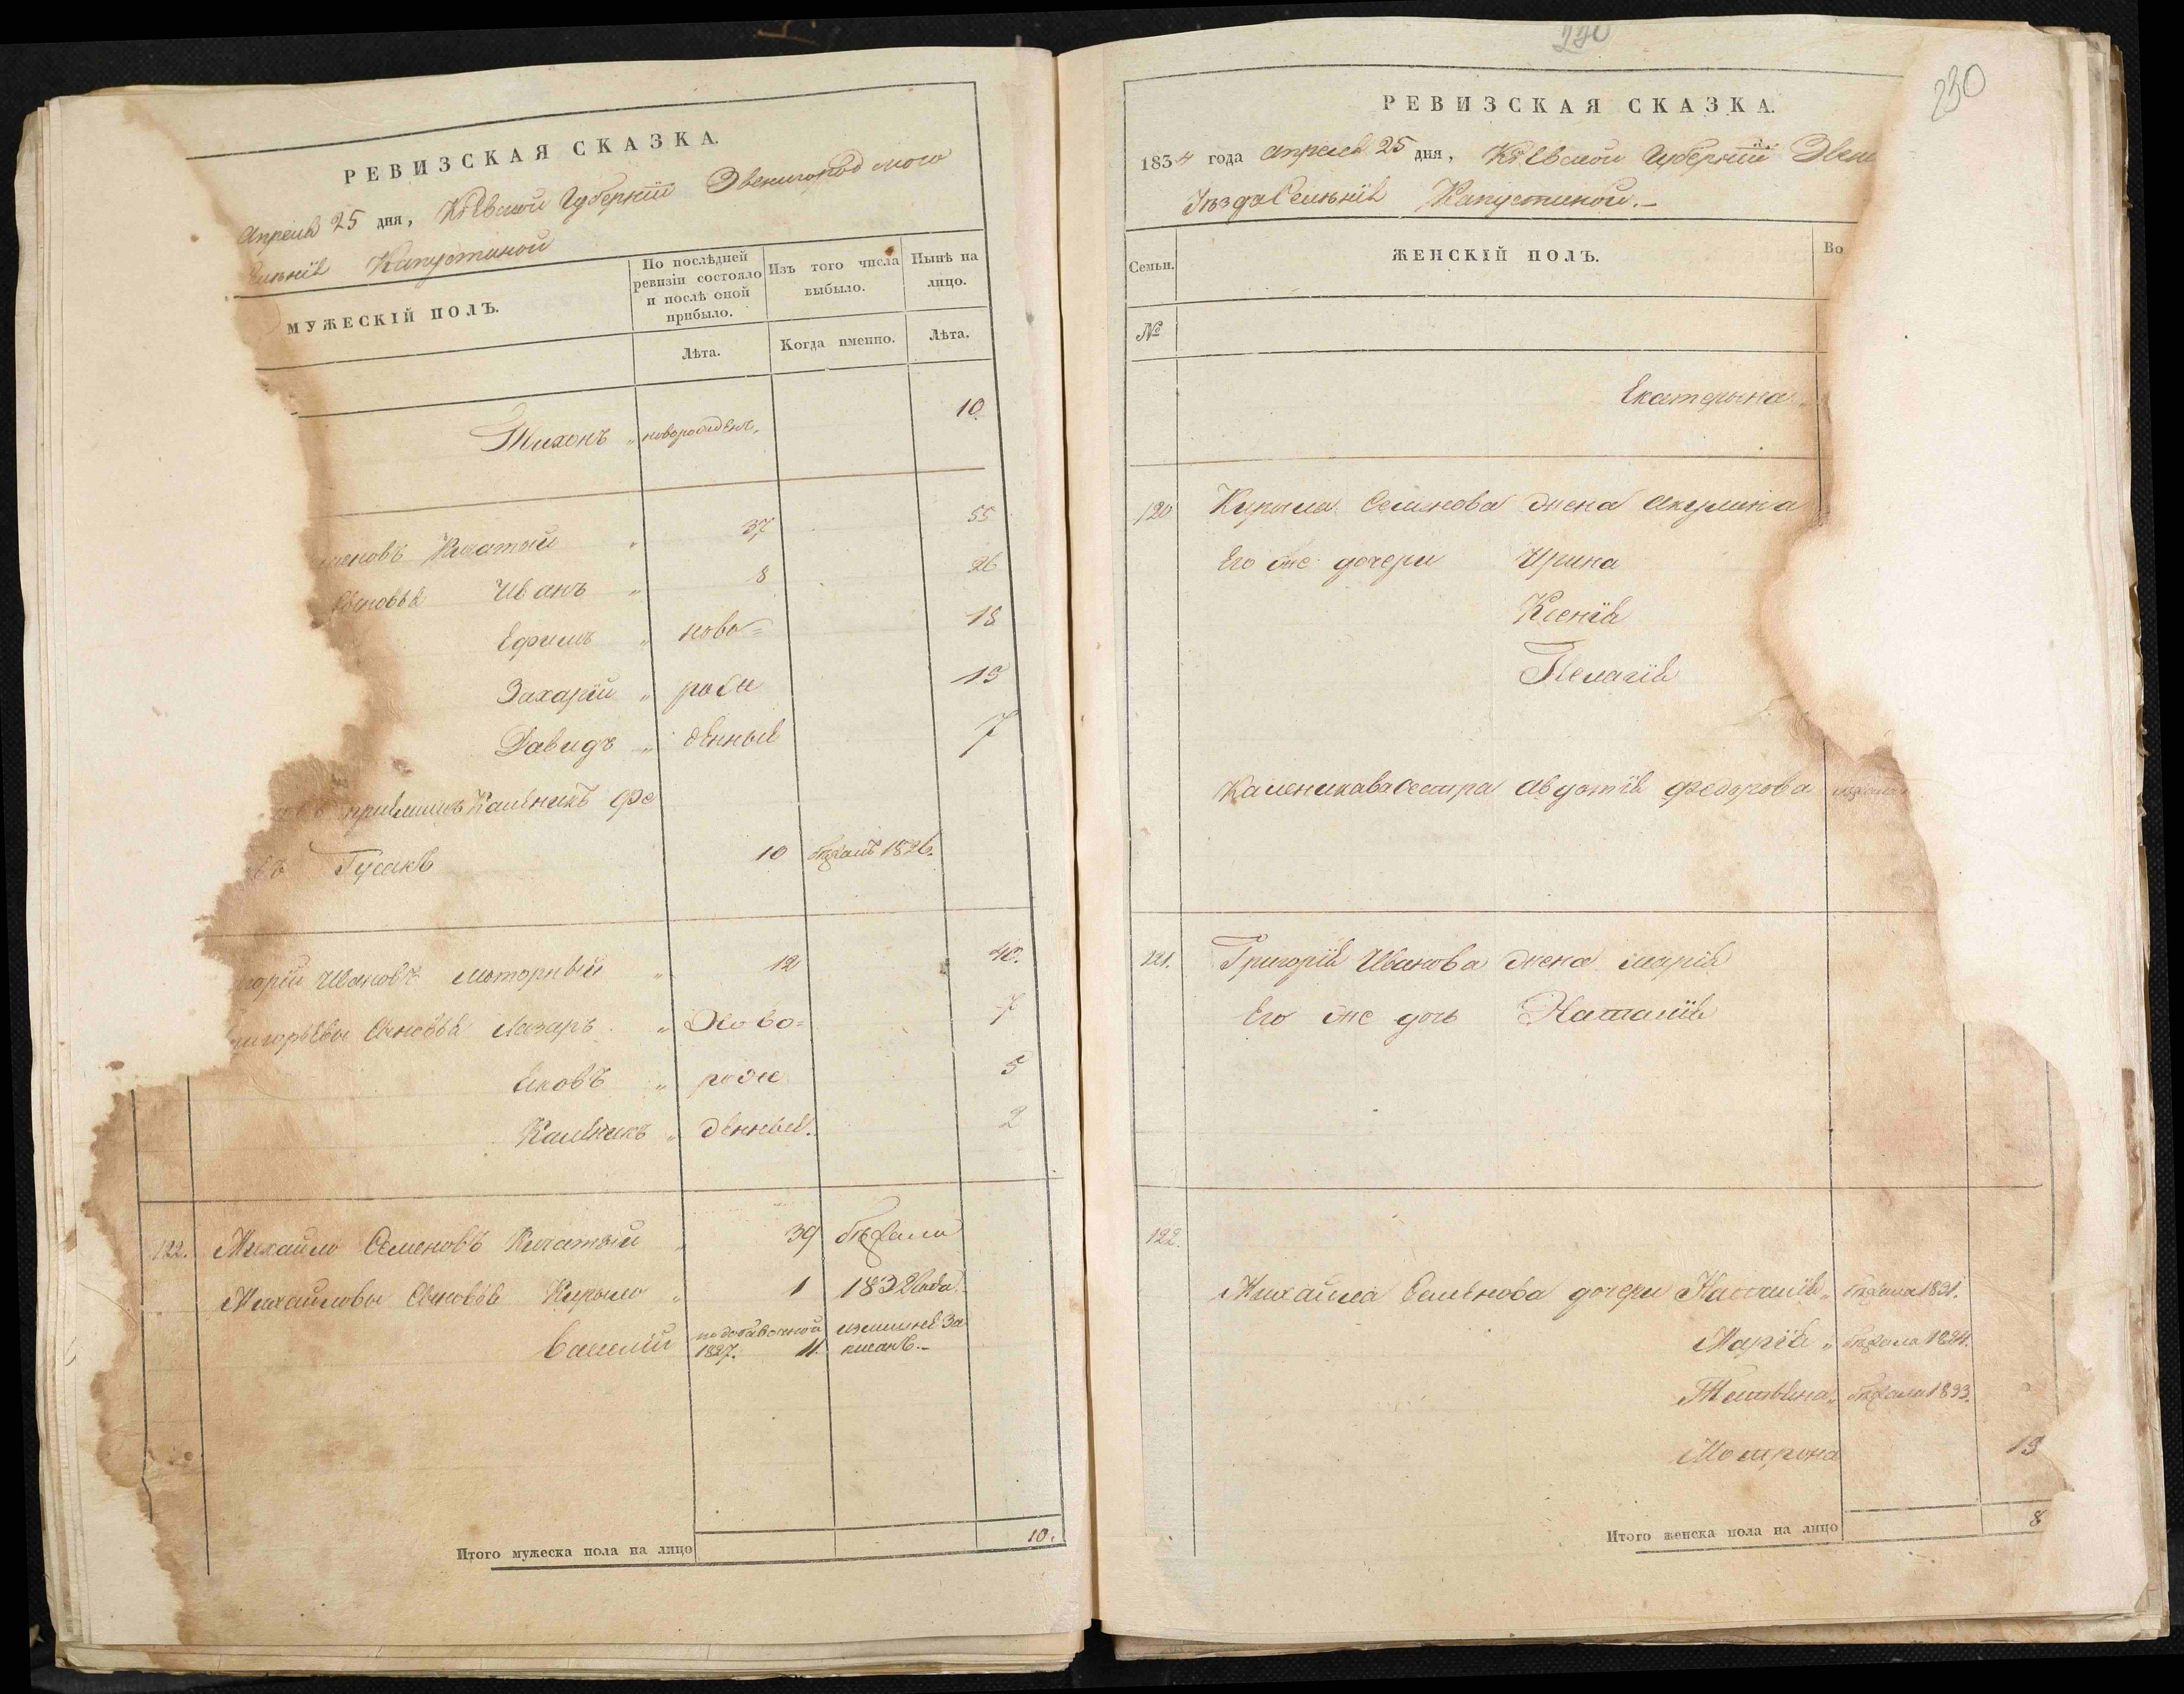 РЕВИЗСКАЯ СКАЗКА.
Апреля 25 дня, Кіевской Губерніи Звенигородского
Капустиной
МУЖЕСКІЙ ПОЛЪ.
По послѣдней ревизіи состояло и послѣ оной прибыло.
Изъ того числа выбыло.
Нынѣ на лицо.
Лѣта.
Когда именно.
Лѣта.
Тихонъ „ новорожден. 10.
37 55
Иванъ „ 8 26
Ефимъ „ ново= 18
Захарій „ рож 13
Давидъ „ денные 7
Каленикъ Фе
Гусакъ 10 бѣжалъ 1826.
Ивановъ Моторный „ 12 40.
Сыновья Лазаръ „ Ново= 7
Яковъ „ рож 5
Каленикъ „ денные. 2
122. Михайло Семеновъ 39 бѣжали
Михайловы Сыновья Кирыло „ 1 1832 года.
Василій по добавочной 1827. 11. излишне За писанъ.-
Итого мужеска пола на лицо 10.
220
230
РЕВИЗСКАЯ СКАЗКА.
1834 года апреля 25 дня, Кіевской Губерніи Звени
Уѣзда Селенія Капустиной.-
Семьи.
ЖЕНСКІЙ ПОЛЪ.
Во
№
Екатерына „
120 Кирыла Семенова жена Акулина
Его же дочери Ирина
Ксенія
Пелагія
Каленикова Сестра Авдотія Федорова
121. Григорія Иванова жена Марія
Его же дочь Наталія
122.
Михайла Семенова дочери Наталія „ бѣжала 1831.
Марія „ бѣжала 1824.
бѣжала 1833.
Мотрона 13
Итого женска пола на лицо 8